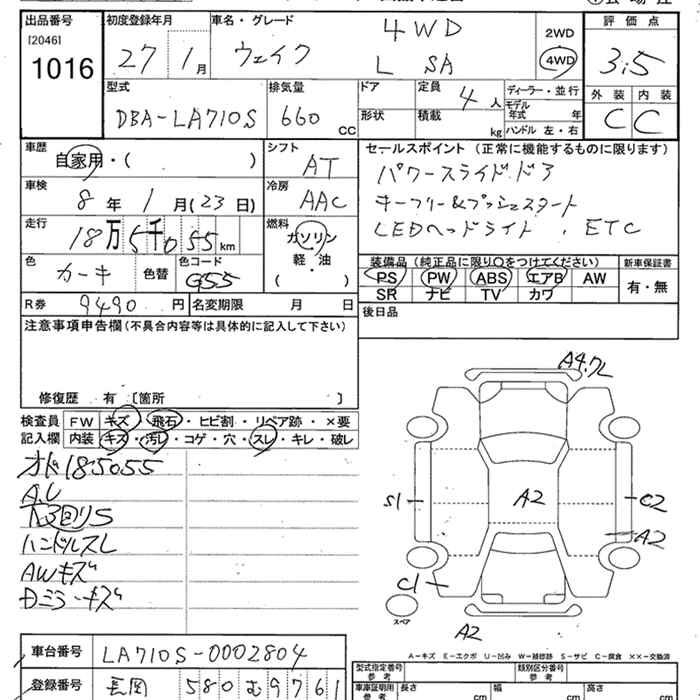 出品番号
[2046]
1016
初度登録年月
27 1月
車名・グレード
ウェイク 4WD
L SA
2WD
4WD
評価点
3.5
外装 内装
C C
型式
DBA-LA710S
排気量
660 CC
ドア
形状
定員 4 人
積載 kg
ディーラー・並行
モデル年式 年
ハンドル 左・右
車歴
自家用・( )
シフト
AT
車検
8年 1月(23日)
冷房
AAC
走行
18万5千055 km
燃料
ガソリン
軽・油
( )
色 カーキ 色替
色コード G55
R券 9490円
名変期限 月 日
セールスポイント (正常に機能するものに限ります)
パワースライドドア
キーフリー&プッシュスタート
LEDヘッドライト . ETC
装備品 (純正品に限り○をつけてください)
PS PW ABS エアB AW
SR ナビ TV カワ
新車保証書
有・無
後日品
注意事項申告欄 (不具合内容等は具体的に記入して下さい)
修復歴 有 〔箇所 〕
検査員
記入欄
FW キズ・飛石・ヒビ割・リペア跡・×要
内装 キズ・汚レ・コゲ・穴・スレ・キレ・破レ
オド185055
A.U
下回りS
ハンドルスレ
AWキズ
Dミラーキズ
S1
A2
C2
A2
C1
A2
スペア
A-キズ E-エクボ U-凹み W-補修跡 S-サビ C-腐食 ××-交換済
車台番号
LA710S-0002804
登録番号
長岡 580 む 9761
型式指定番号
参考
類別区分番号
参考
車庫証明用
参考
長さ cm
幅 cm
高さ cm